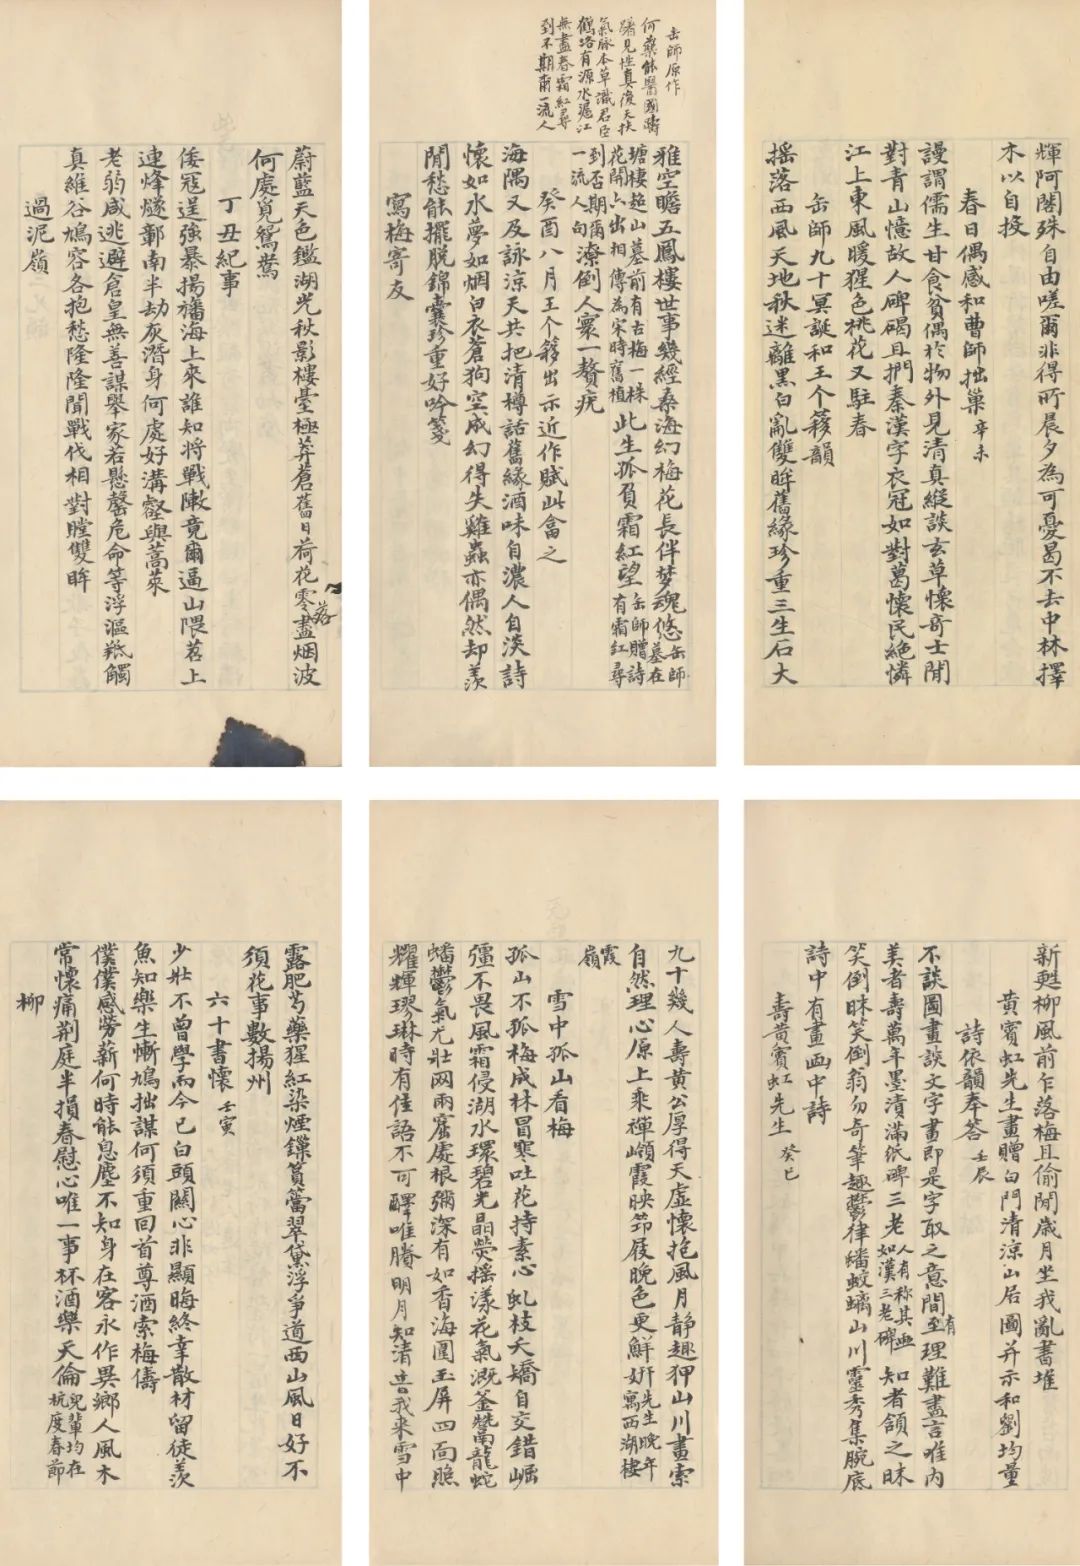 輝阿閣殊自由嗟爾非得所晨夕為可憂曷不去中林擇
木以自投
春日偶感和曹師拙巢辛未
謾謂儒生甘食貧偶於物外見清真縱談玄草懷奇士閒
對青山憶故人碑碣且捫秦漢字衣冠如對葛懷民絕憐
江上東風暖猩色桃花又駐春
缶師九十冥誕和王个簃韻
搖落西風天地秋迷離黑白亂雙眸舊緣珍重三生石大
缶師原作
何藥能醫國疇
躇見性真後天扶
氣脉本草識君臣
鶴塔有源水滬江
無盡春霜紅尋
到不期爾一流人
雅空瞻五鳳樓世事幾經桑海幻梅花長伴梦魂悠缶師墓在
塘棲超山墓前有古梅一株
花開六出相傳為宋時舊植此生孤負霜紅望缶師贈詩有霜紅尋
到否期爾一流人句潦倒人寰一贅疣
癸酉八月王个簃出示近作賦此畣之
海隅又及詠涼天共把清樽話舊緣酒味自濃人自淡詩
懷如水夢如烟白衣蒼狗空成幻得失雞蟲亦偶然却羨
閒愁能擺脫錦囊珍重好吟箋
寫梅寄友
蔚藍天色鑑湖光秋影樓臺極莽蒼舊日荷花零落盡烟波
何處覓鴛鴦
丁丑紀事
倭寇逞強暴揚旛海上來誰知將戰敵竟爾逼山隈苕上
連烽燧鄣南半劫灰潛身何處好溝壑與蒿萊
老弱咸逃避倉皇無善謀舉家若懸罄危命等浮漚羝觸
真維谷鳩容各抱愁隆隆聞戰伐相對瞠雙眸
過泥嶺
新甦柳風前乍落梅且偷閒歲月坐我亂書堆
黃賓虹先生畫贈白門清涼山居圖并示和劉均量
詩依韻奉答壬辰
不談圖畫談文字畫即是字取之意間有至理難盡言唯內
美者壽萬年墨漬滿紙碑三老人有称其画如漢三老碑知者頷之昧
笑倒昧笑倒翁勿奇筆趣鬱律蟠蛟螭山川靈秀集腕底
詩中有畫画中詩
壽黃賓虹先生癸巳
九十幾人壽黃公厚得天虛懷抱風月静趣狎山川畫索
自然理心原上乘禪嶺霞映筇屐晚色更鮮妍先生晚年寓西湖棲
霞嶺
雪中孤山看梅
孤山不孤梅成林冒寒吐花持素心虬枝夭矯自交錯崛
彊不畏風霜侵湖水環碧光晶熒搖漾花氣溉釜鬵龍蛇
蟠鬱氣尤壯网兩窟處根彌深有如香海圍玉屏四面照
耀輝璆琳時有佳語不可譯唯賸明月知清音我来雪中
露肥芍藥猩紅染煙鏁篔簹翠黛浮爭道西山風日好不
須花事數揚州
六十書懷壬寅
少壯不曾學而今已白頭關心非顯晦終幸散材留徒羨
魚知樂生慚鳩拙謀何須重回首尊酒索梅儔
僕僕感勞薪何時能息塵不知身在客永作異鄉人風木
常懷痛荆庭半損春慰心唯一事杯酒樂天倫兒輩均在杭度春節
柳